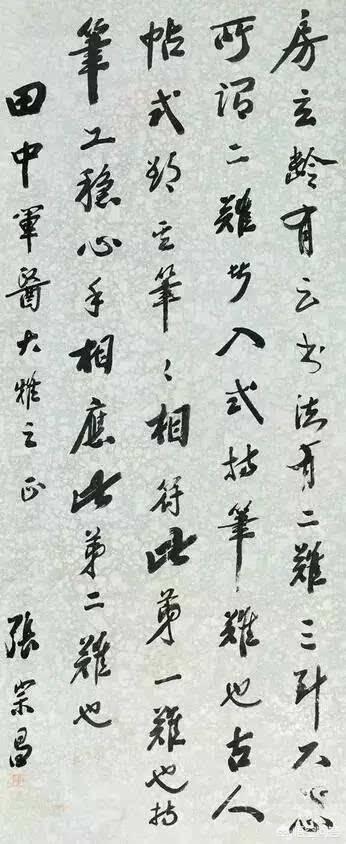 房玄齡有云書法有二難三不
所謂二難入式持筆難也古人
帖式筆〻相符此第一難也持
筆工穩心手相應此第二難也
田中軍醫大雅之正
張宗昌